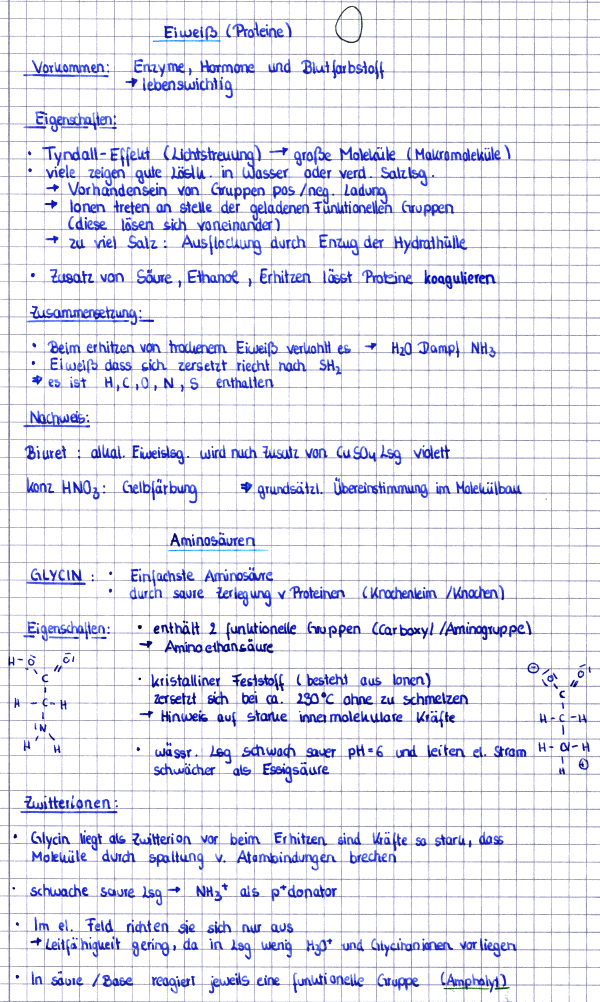 Eiweiß (Proteine)
Vorkommen: Enzyme, Hormone und Blutfarbstoff
→ lebenswichtig
Eigenschaften:
• Tyndall-Effekt (Lichtstreuung) → große Moleküle (Makromoleküle)
• viele zeigen gute Löslk. in Wasser oder verd. Salzlsg.
→ Vorhandensein von Gruppen pos/neg. Ladung
→ Ionen treten an stelle der geladenen Funktionellen Gruppen
(diese lösen sich voneinander)
→ zu viel Salz: Ausflockung durch Enzug der Hydrathülle
• Zusatz von Säure, Ethanol, Erhitzen lässt Proteine koagulieren
Zusammensetzung:
• Beim erhitzen von trockenem Eiweiß verkohlt es → H2O Dampf NH3
• Eiweiß dass sich zersetzt riecht nach SH2
⇒ es ist H, C, O, N, S enthalten
Nachweis:
Biuret: alkal. Eiweislsg. wird nach Zusatz von CuSO4 Lsg violett
konz HNO3: Gelbfärbung ⇒ grundsätzl. Übereinstimmung im Molekülbau
Aminosäuren
GLYCIN: • Einfachste Aminosäure
• durch saure Zerlegung v Proteinen (Knochenleim/Knochen)
Eigenschaften: • enthält 2 funktionelle Gruppen (Carboxyl/Aminogruppe)
→ Aminoethansäure
• kristalliner Feststoff (besteht aus Ionen)
zersetzt sich bei ca. 230°C ohne zu schmelzen
→ Hinweis auf starke innermolekulare Kräfte
• wässr. Lsg schwach sauer pH=6 und leiten el. Strom
schwächer als Essigsäure
H-O O
C
H-C-H
N
H H
⊖ O O
C
H-C-H
H-N-H
H ⊕
Zwitterionen:
• Glycin liegt als Zwitterion vor beim Erhitzen sind Kräfte so stark, dass
Moleküle durch spaltung v. Atombindungen brechen
• schwache saure Lsg → NH3+ als p+donator
• Im el. Feld richten sie sich nur aus
→ Leitfähigkeit gering, da in Lsg wenig H3O+ und Glycinanionen vorliegen
• In säure/Base reagiert jeweils eine funktionelle Gruppe (Ampholyt)